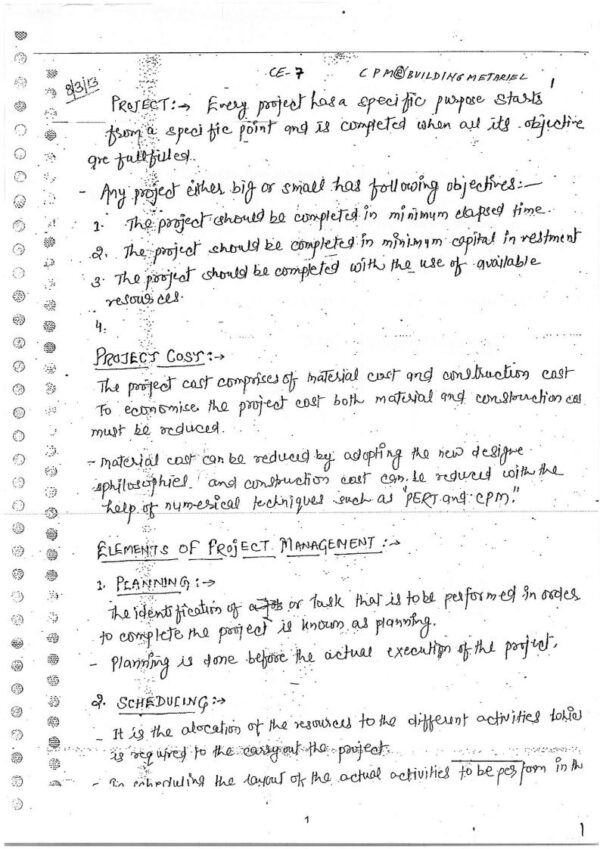 8/3/13
CE-7 CPM@BUILDING METARIEL 1
PROJECT:→ Every project has a specific purpose starts
from a specific point and is completed when all its objective
are fullfilled.
- Any project either big or small has following objectives:—
1. The project should be completed in minimum elapsed time.
2. The project should be completed in minimum capital in restment
3. The project should be completed with the use of available
resources.
4.
PROJECT COST:→
The project cost comprises of material cost and construction cost
To economise the project cost both material and construction cos
must be reduced.
- material cost can be reduced by adopting the new designe
and construction cost can be reduced with the
help of numerical techniques such as "PERT and CPM."
ELEMENTS OF PROJECT MANAGEMENT:→
1. PLANNING:→
The identification of or Task that is to be performed in order
to complete the project is known as planning.
- Planning is done before the actual execution of the project.
2. SCHEDULING:→
- It is the alocation of the resources to the different activities
is required to the carryout the project.
- In scheduling the layout of the actual activities to be perform in th
1
1